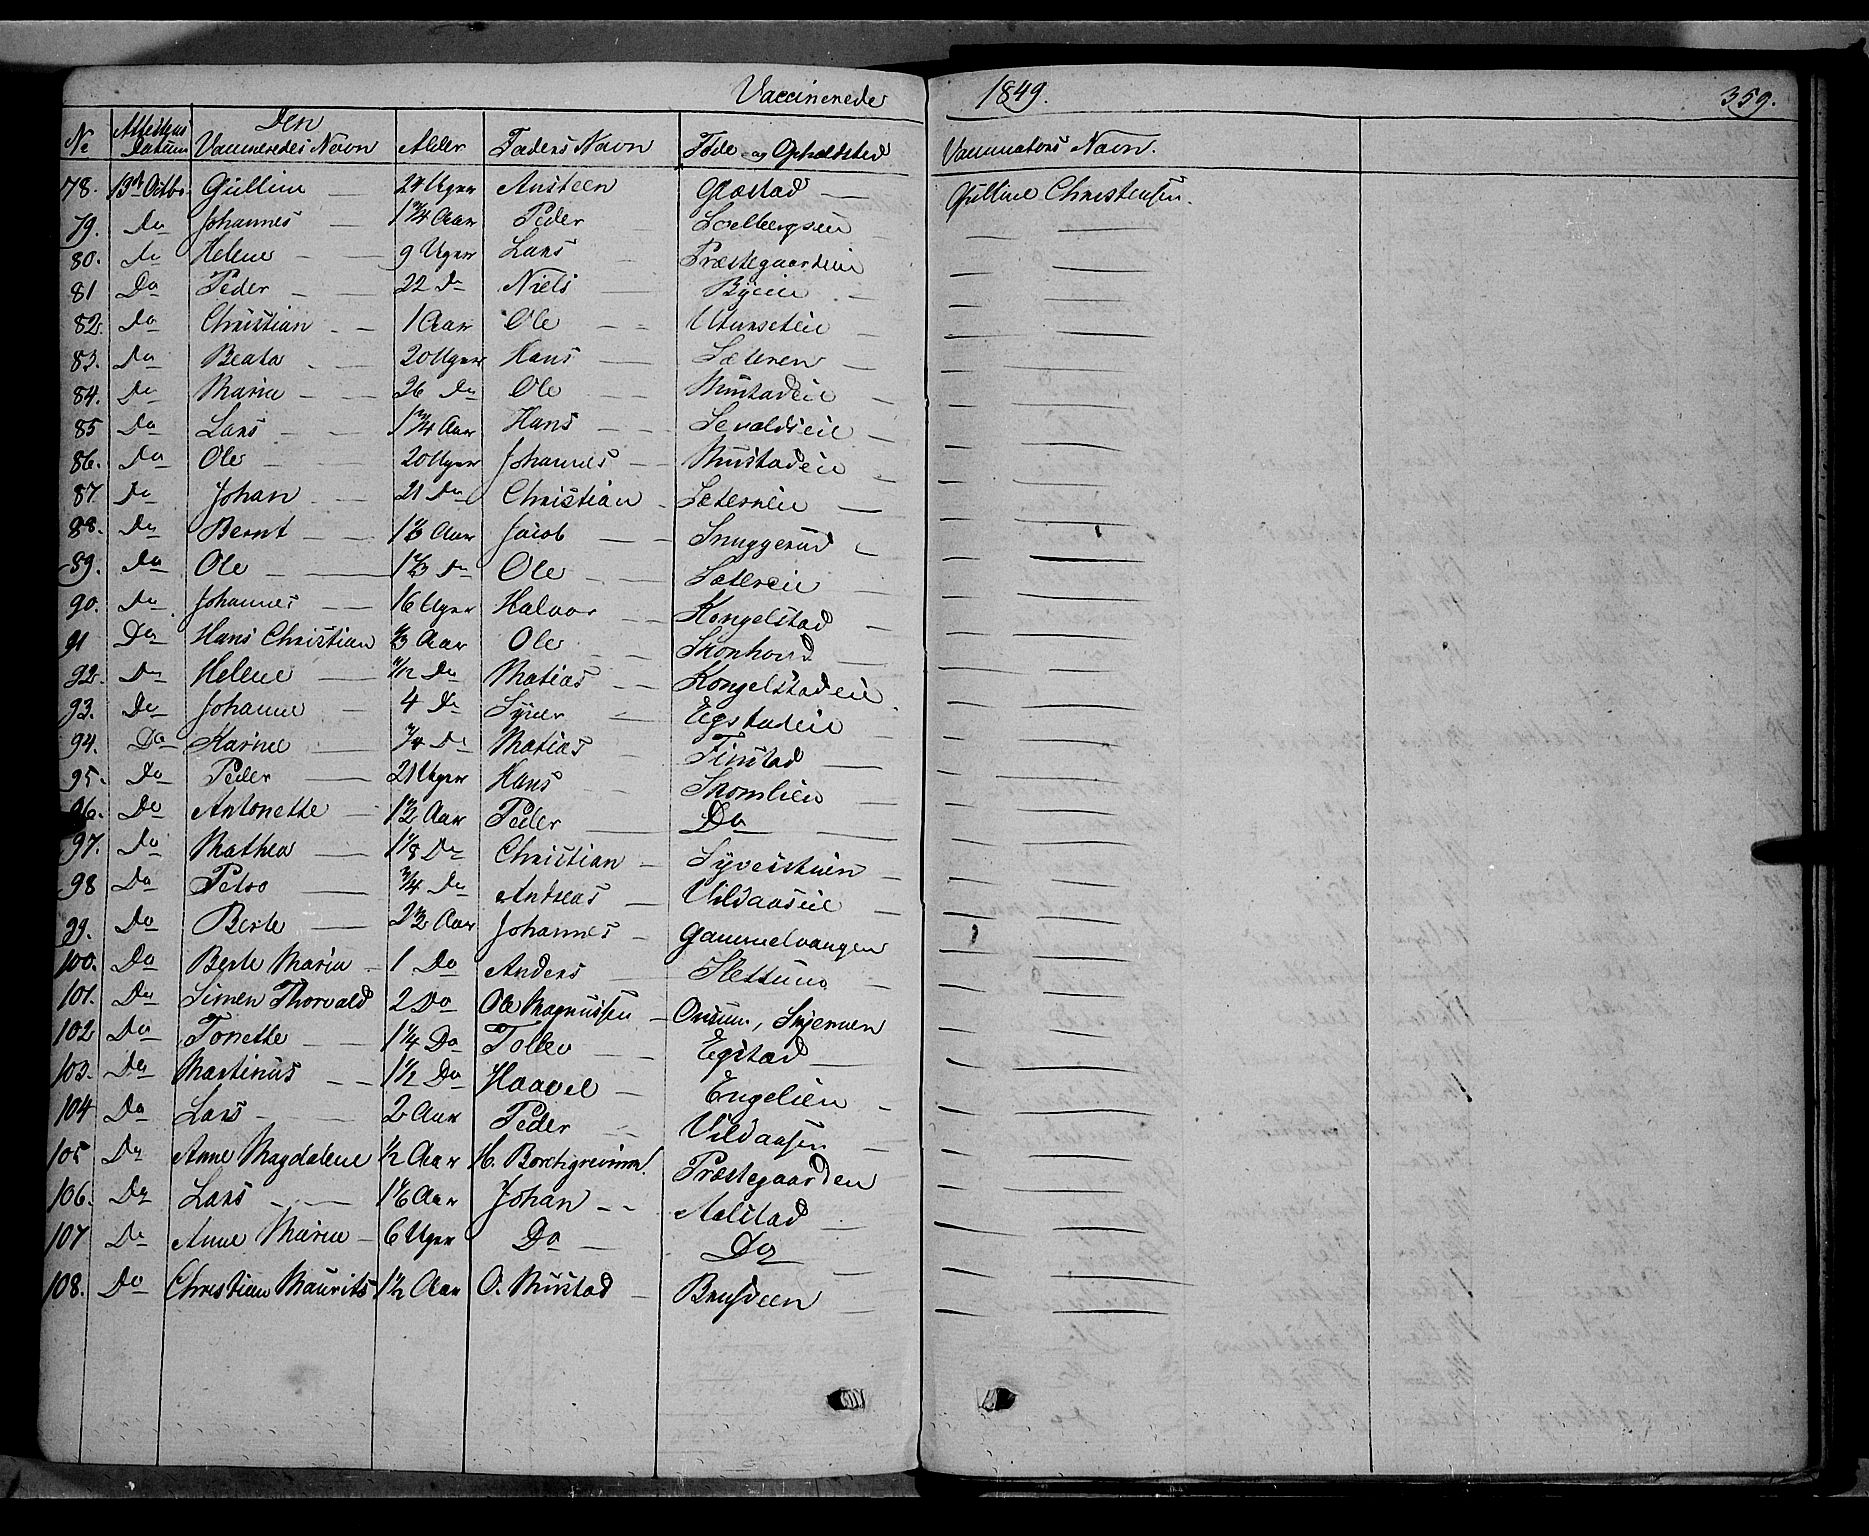 Vaccinerede 1849. 359.
No Attestens Datum Den Vaccineredes Navn Alder Faders Navn Føde og Opholdsted Vaccinators Navn.
78. 13de Octbr. Gulline 24 Uger Ansteen Gløstad Guline Christensen.
79. Do Johannes 1 3/4 Aar Peder Soelbergseie
80. Do Helene 9 Uger Lars Præstegaardeie
81 Do Peder 22 Do Niels Byeie
82. Do Christian 1 Aar Ole
83. Do Beata 20 Uger Hans Sæteren
84. Do Marie 26 Do Ole Mustadeie
85 Do Lars 1 3/4 Aar Hans Sevaldseie
86. Do Ole 20 Uger Johannes Mustadeie
87. Do Johan 21 Do Christian Sætereie
88. Do Bernt 1 1/3 Aar Jacob Snuggerud
89. Do Ole 1 2/3 Do Ole Sætereie
90. Do Johannes 16 Uger Halvor Kongelstad
91 Do Hans Christian 2/3 Aar Ole Skonhovd
92. Do Helene Do Matias Kongelstadeie
93. Do Johanne 4 Do Syver Egstadeie
94. Do Karine 3/4 Do Matias Finstad
95. Do Peder 21 Uger Hans Skomlien
96. Do Antonette 1 1/2 Aar Peder Do
97. Do Mathea 1 1/8 Do Christian Syverstuen
98 Do Petro 3/4 Do Andreas Vildaaseie
99. Do Berte 2 1/2 Aar Johannes Gammelvangen
100. Do Berte Marie 1 Do Anders Slettum
101. Do Simen Thorvald 2 Do Ole Magnussen Onsum, Skjernen
102 Do Tonette 1 1/4 Do Tollev Egstad
103. Do Martinus 1 1/2 Do Haavel Engelien
104 Do Lars 2 Aar Peder Vildaasen
105 Do Anne Magdalene 1/2 Aar H. Borchgrevink Præstegaarden
106. Do Lars 1 1/6 Aar Johan Aalstad
107 Do Anne Marie 6 Uger Do Do
108. Do Christian Maurits 1 1/2 Aar O. Mustad Brusveen